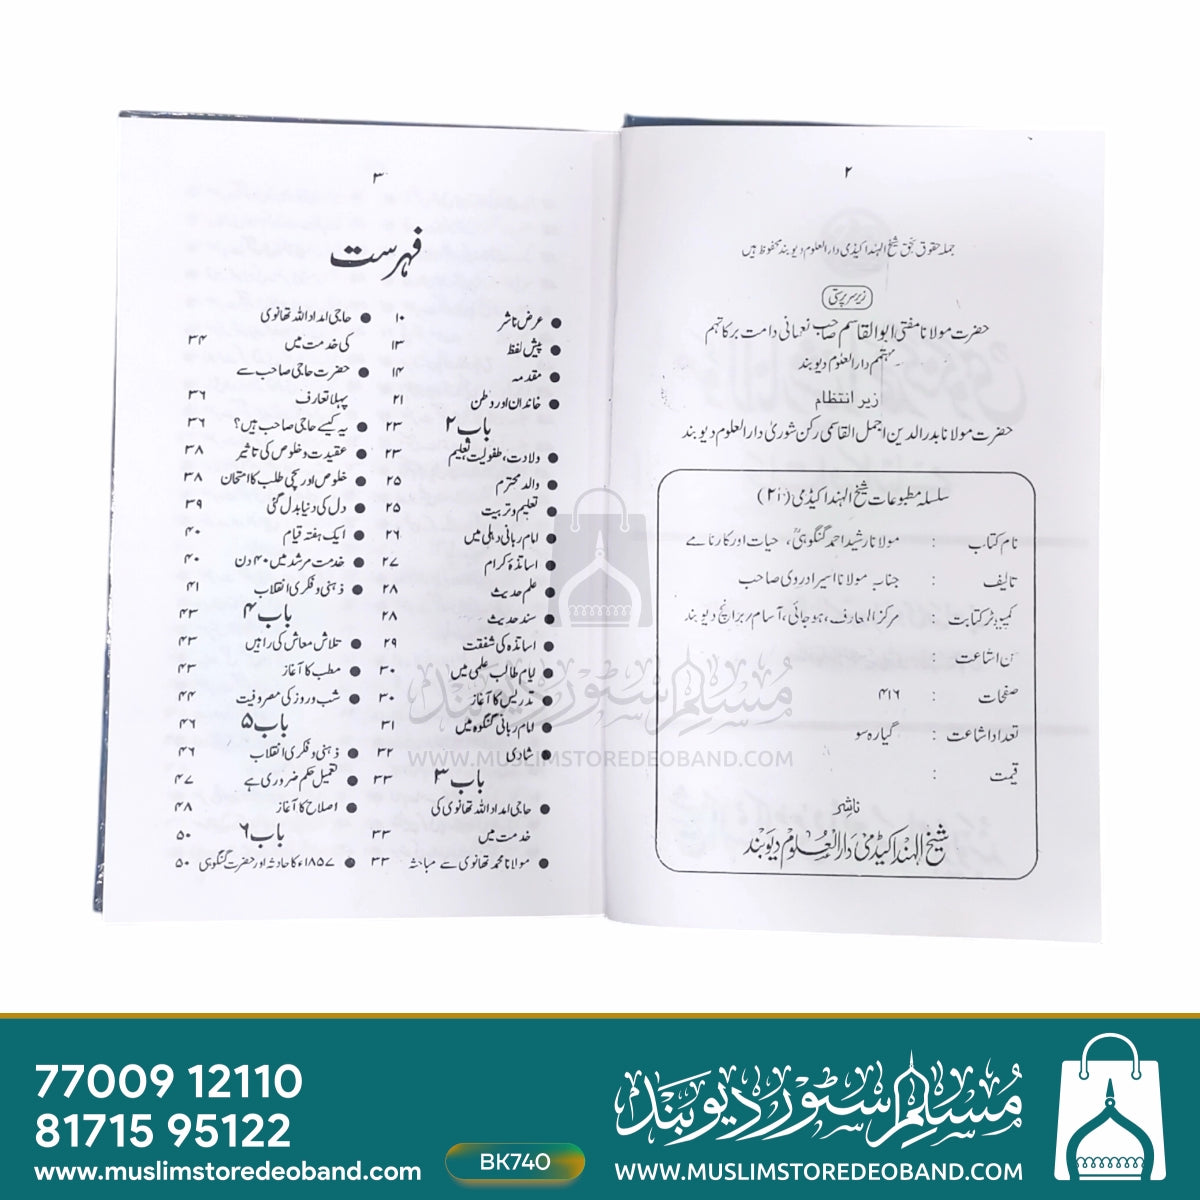 ۲
جملہ حقوق بحق شیخ الہند اکیڈمی دارالعلوم دیوبند محفوظ ہیں
زیر سرپرستی
حضرت مولانا مفتی ابوالقاسم صاحب نعمانی دامت برکاتہم
مہتمم دارالعلوم دیوبند
زیر انتظام
حضرت مولانا بدرالدین اجمل القاسمی رکن شوریٰ دارالعلوم دیوبند
سلسلہ مطبوعات شیخ الہند اکیڈمی
نام کتاب : مولانا رشید احمد گنگوہیؒ، حیات اور کارنامے
تالیف : جناب مولانا اسیر ادروی صاحب
کمپیوٹر کتابت : مرکز المعارف، ہوجائی، آسام ربرانچ دیوبند
سن اشاعت :
صفحات : ۴۱۶
تعداد اشاعت : گیارہ سو
قیمت :
ناشر
شیخ الہند اکیڈمی دارالعلوم دیوبند
۳
فہرست
● عرض ناشر ۱۰
● پیش لفظ ۱۳
● مقدمہ ۱۴
● خاندان اور وطن ۲۱
باب ۲ ۲۳
● ولادت، طفولیت، تعلیم ۲۳
● والد محترم ۲۵
● تعلیم و تربیت ۲۵
● امام ربانی دہلی میں ۲۶
● اساتذۂ کرام ۲۷
● علم حدیث ۲۸
● سند حدیث ۲۸
● اساتذہ کی شفقت ۲۹
● ایام طالب علمی میں ۳۰
● تدریس کا آغاز ۳۰
● امام ربانی گنگوہ میں ۳۱
● شادی ۳۲
باب ۳ ۳۳
● حاجی امداد اللہ تھانوی کی
خدمت میں ۳۳
● مولانا محمد تھانوی سے مباحثہ ۳۳
● حاجی امداد اللہ تھانوی
کی خدمت میں ۳۴
● حضرت حاجی صاحب سے
پہلا تعارف ۳۶
● یہ کیسے حاجی صاحب ہیں؟ ۳۶
● عقیدت و خلوص کی تاثیر ۳۸
● خلوص اور سچی طلب کا امتحان ۳۸
● دل کی دنیا بدل گئی ۳۹
● ایک ہفتہ قیام ۴۰
● خدمت مرشد میں ۴۰ دن ۴۰
● ذہنی و فکری انقلاب ۴۱
باب ۴ ۴۳
● تلاش معاش کی راہیں ۴۳
● مطب کا آغاز ۴۳
● شب و روز کی مصروفیت ۴۴
باب ۵ ۴۶
● ذہنی و فکری انقلاب ۴۶
● تعمیل حکم ضروری ہے ۴۷
● اصلاح کا آغاز ۴۸
باب ۶ ۵۰
● ۱۸۵۷ء کا حادثہ اور حضرت گنگوہی ۵۰
مسلم سٹور دیوبند
WWW.MUSLIMSTOREDEOBAND.COM
77009 12110
81715 95122
www.muslimstoredeoband.com
BK740
مسلم سٹور دیوبند
WWW.MUSLIMSTOREDEOBAND.COM